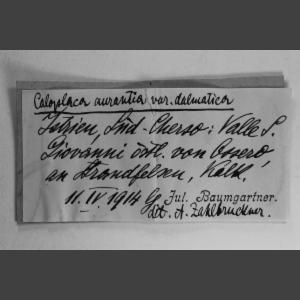 Caloplaca aurantia var. dalmatica
Istrien, Süd-Cherso: Valle S.
Giovanni östl. von Ossero
an Strandfelsen, Kalk.
11. IV. 1914 Jul. Baumgartner.
det. A. Zahlbruckner.